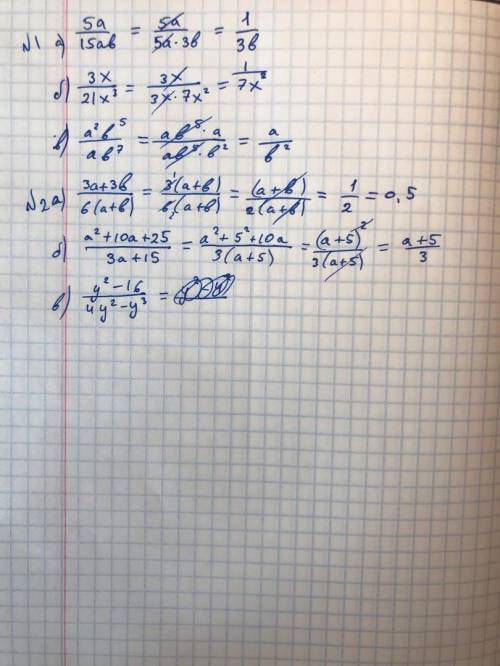 №1 а) 5a/15ab = 5a/5a·3b = 1/3b
б) 3x/21x³ = 3x/3x·7x² = 1/7x²
в) a²b⁵/ab⁷ = ab⁵·a/ab⁵·b² = a/b²
№2 а) 3a+3b/6(a+b) = 3¹(a+b)/6₂(a+b) = (a+b)/2(a+b) = 1/2 = 0,5
б) a²+10a+25/3a+15 = a²+5²+10a/3(a+5) = (a+5)²/3(a+5) = a+5/3
в) y²-16/4y²-y³ =